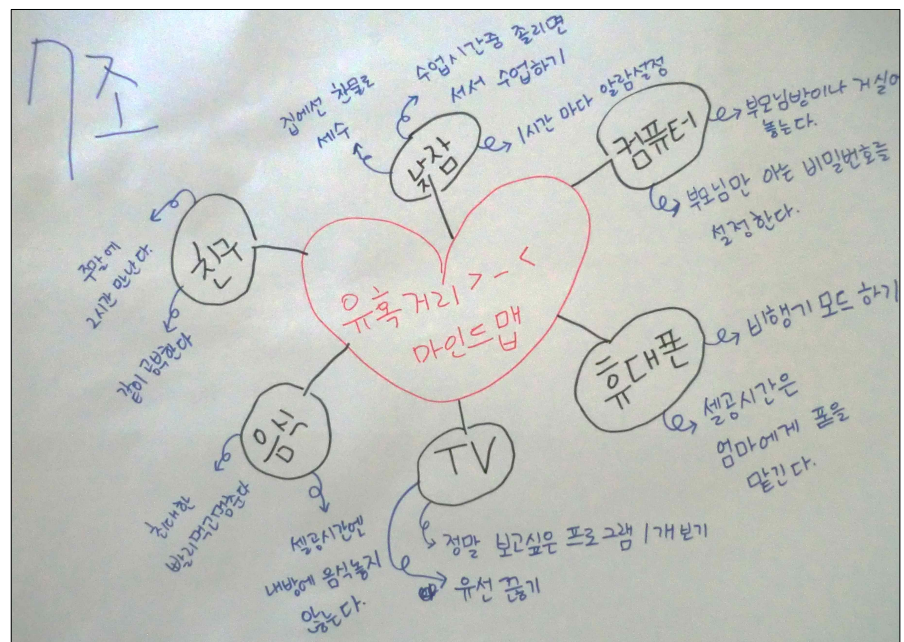 7조
유혹거리 >-<
마인드맵
낮잠
집에선 찬물로
세수
수업시간중 졸리면
서서 수업하기
1시간 마다 알람설정
컴퓨터
부모님방이나 거실에
놓는다.
부모님만 아는 비밀번호를
설정한다.
휴대폰
비행기 모드 하기
셀공시간은
엄마에게 폰을
맡긴다.
TV
정말 보고싶은 프로그램 1개보기
유선 끊기
음식
최대한
빨리먹고멈춘다
셀공시간엔
내방에 음식놓지
않는다.
친구
주말에
2시간 만난다.
같이 공부한다